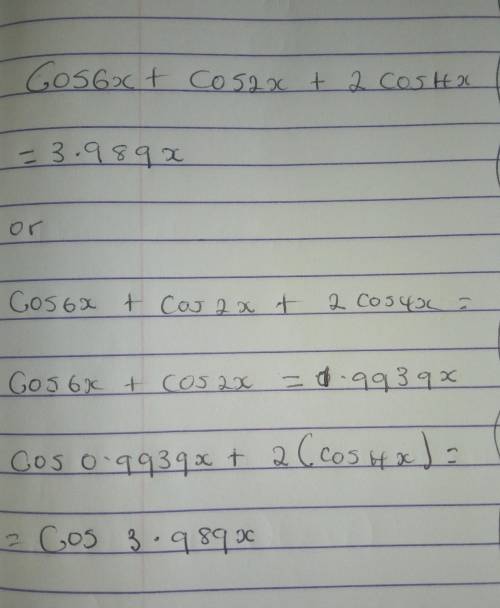 Cos6x + cos2x + 2 cos4x
= 3.989x
or
Cos6x + Cos2x + 2 cos4x =
Cos6x + cos2x = 1.9939x
Cos 0.9939x + 2(cos4x) =
= Cos 3.989x